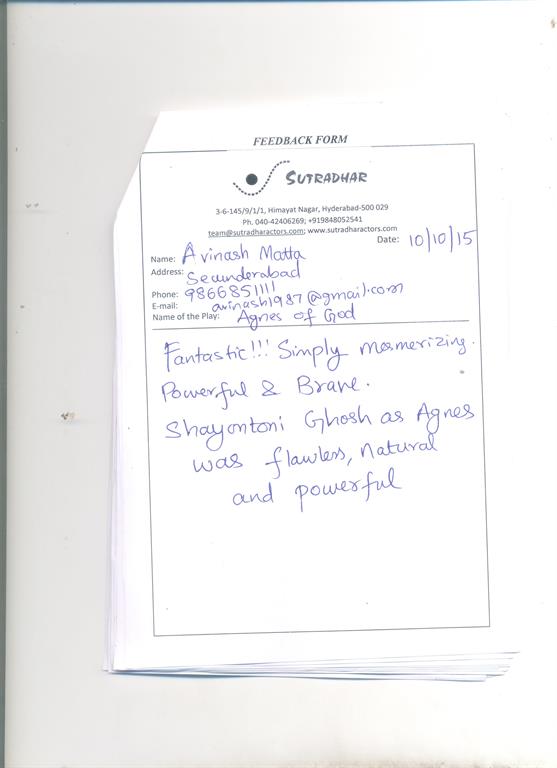 FEEDBACK FORM
SUTRADHAR
3-6-145/9/1/1, Himayat Nagar, Hyderabad-500 029
Ph. 040-42406269; +919848052541
team@sutradharactors.com; www.sutradharactors.com
Date: 10/10/15
Name: Avinash Matta
Address: Secunderabad
Phone: 9866851111
E-mail: avinash1987@gmail.com
Name of the Play: Agnes of God
Fantastic!!! Simply mesmerizing.
Powerful & Brave.
Shayontoni Ghosh as Agnes
was flawless, natural
and powerful